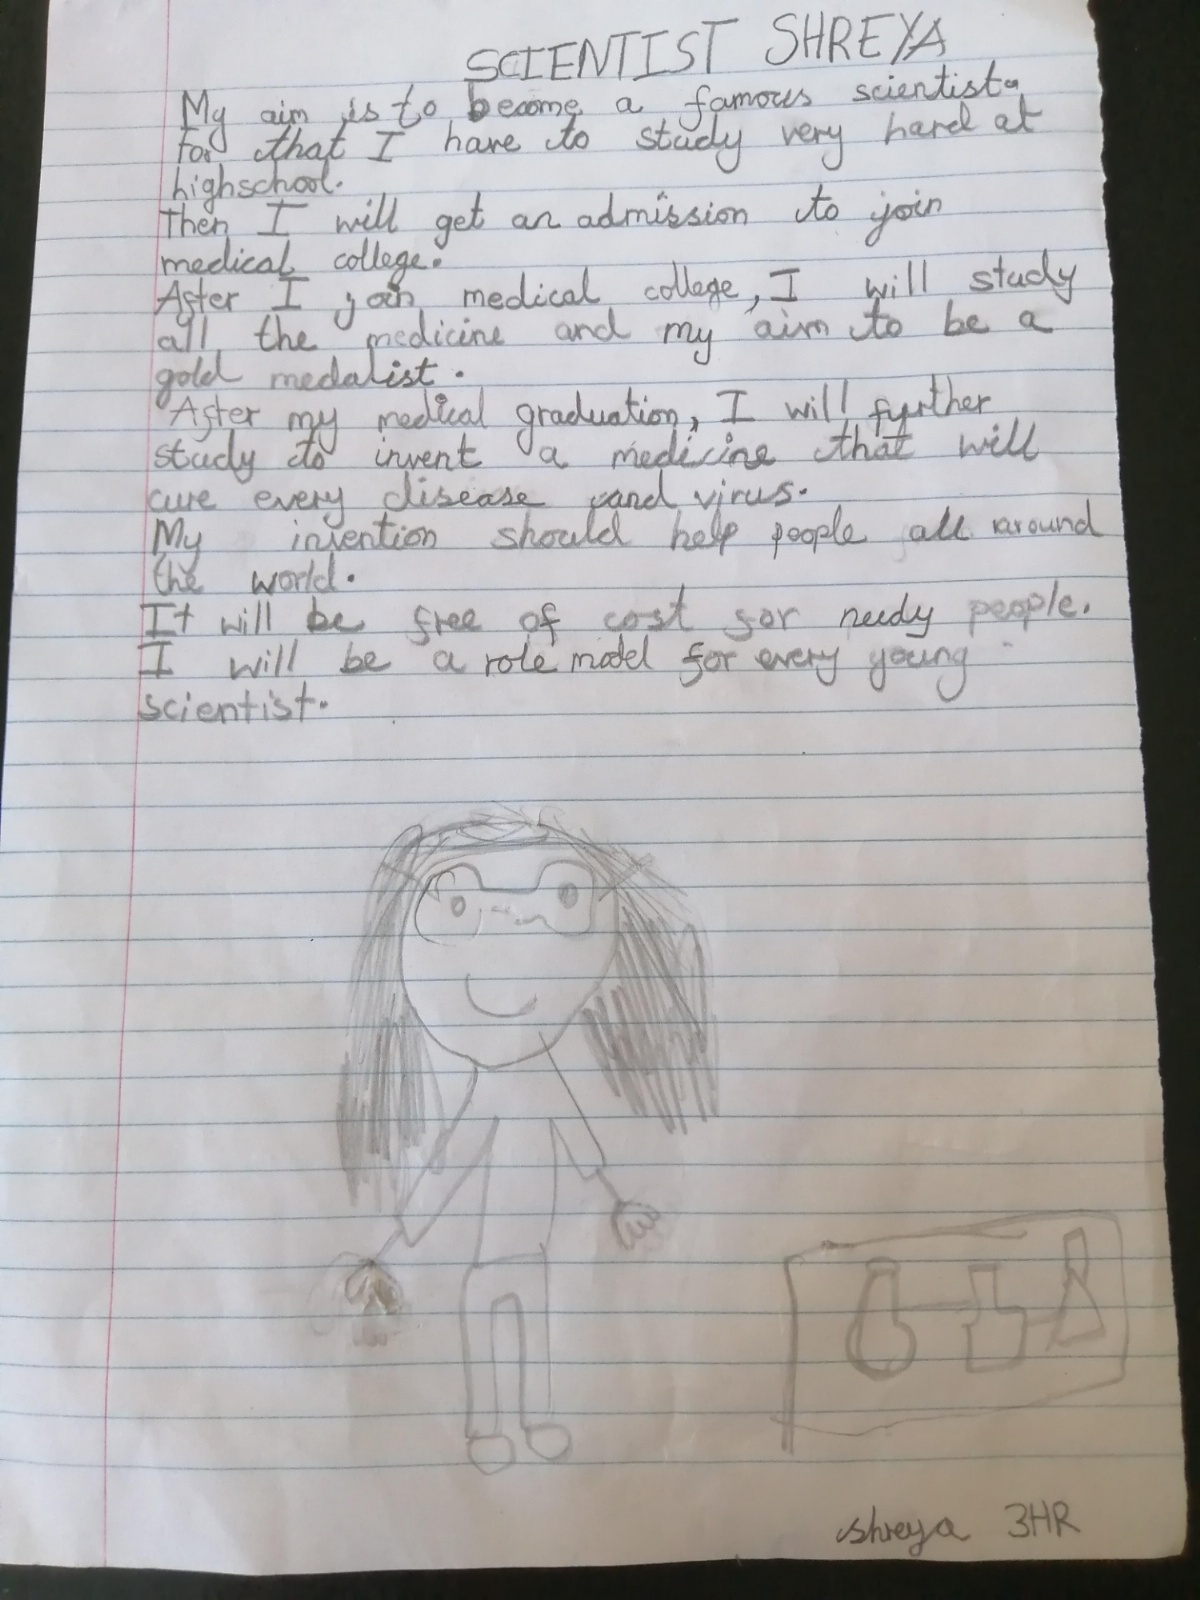 SCIENTIST SHREYA
My aim is to become a famous scientist.
For that I have to study very hard at
highschool.
Then I will get an admission to join
medical college.
After I join medical college, I will study
all the medicine and my aim to be a
gold medalist.
After my medical graduation, I will further
study to invent a medicine that will
cure every disease and virus.
My invention should help people all around
the world.
It will be free of cost for needy people.
I will be a role model for every young
scientist.
shreya 3HR